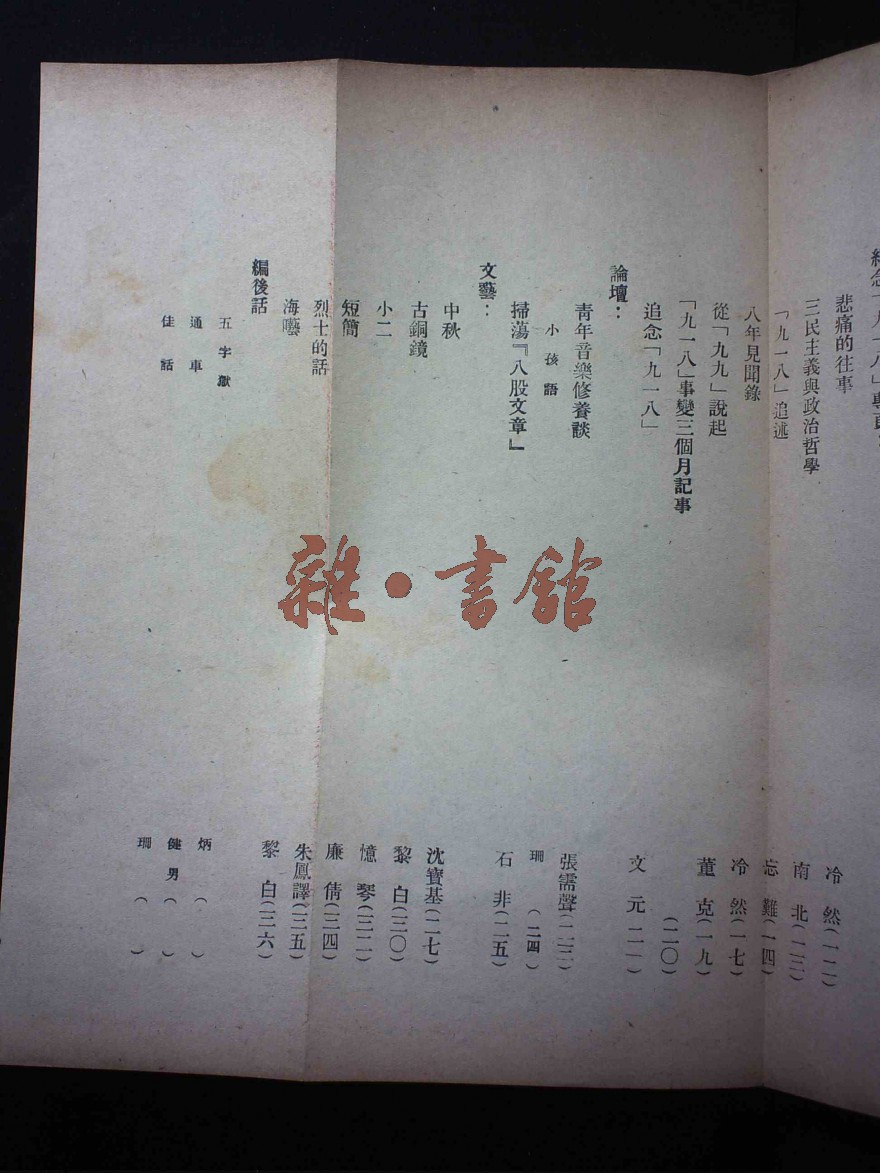 念「九一八」專頁：
悲痛的往事 冷然(一二)
三民主義與政治哲學 南北(一三)
「九一八」追述 忘難(一四)
八年見聞錄 冷然(一七)
從「九九」說起 董克(一九)
「九一八」事變三個月記事 (二〇)
追念「九一八」 文元 二一)
論壇：
青年音樂修養談 張需聲(二二)
小孩語 珊(二四)
掃蕩『八股文章』 石非(二五)
文藝：
中秋 沈寶基(二七)
古銅鏡 黎白(三〇)
小二 憶琴(三二)
短簡 廉倩(三四)
烈士的話 朱鳳譯(三五)
海囈 黎白(三六)
編後話
五字獄 炳( )
通車 健男( )
佳話 珊( )
雜·書館